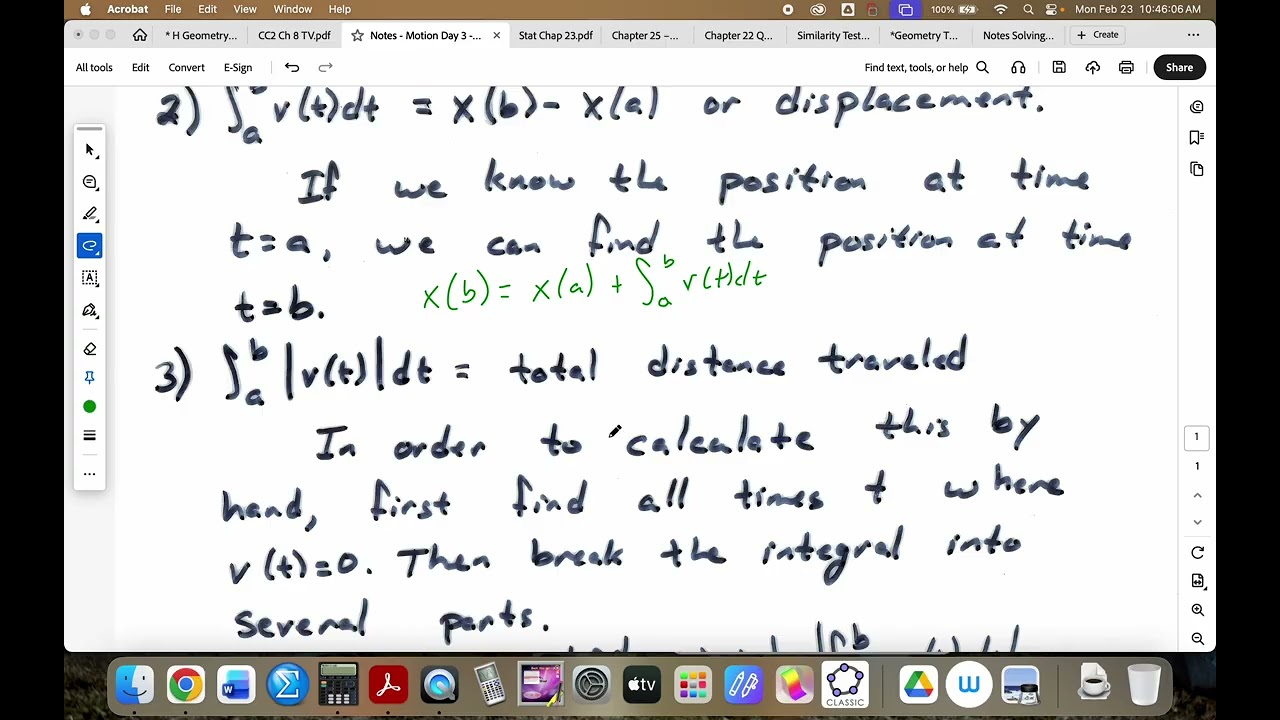 Acrobat File Edit View Window Help 100% Mon Feb 23 10:46:06 AM
* H Geometry... CC2 Ch 8 TV.pdf Notes - Motion Day 3 -... Stat Chap 23.pdf Chapter 25 –... Chapter 22 Q... Similarity Test... *Geometry T... Notes Solving... + Create
All tools Edit Convert E-Sign Find text, tools, or help Share
2) ∫_a^b v(t)dt = x(b) - x(a) or displacement.
If we know the position at time
t=a, we can find the position at time
x(b) = x(a) + ∫_a^b v(t)dt
t=b.
3) ∫_a^b |v(t)|dt = total distance traveled
In order to calculate this by
hand, first find all times t where
v(t)=0. Then break the integral into
several parts.
1
1
tv
W
CLASSIC
W